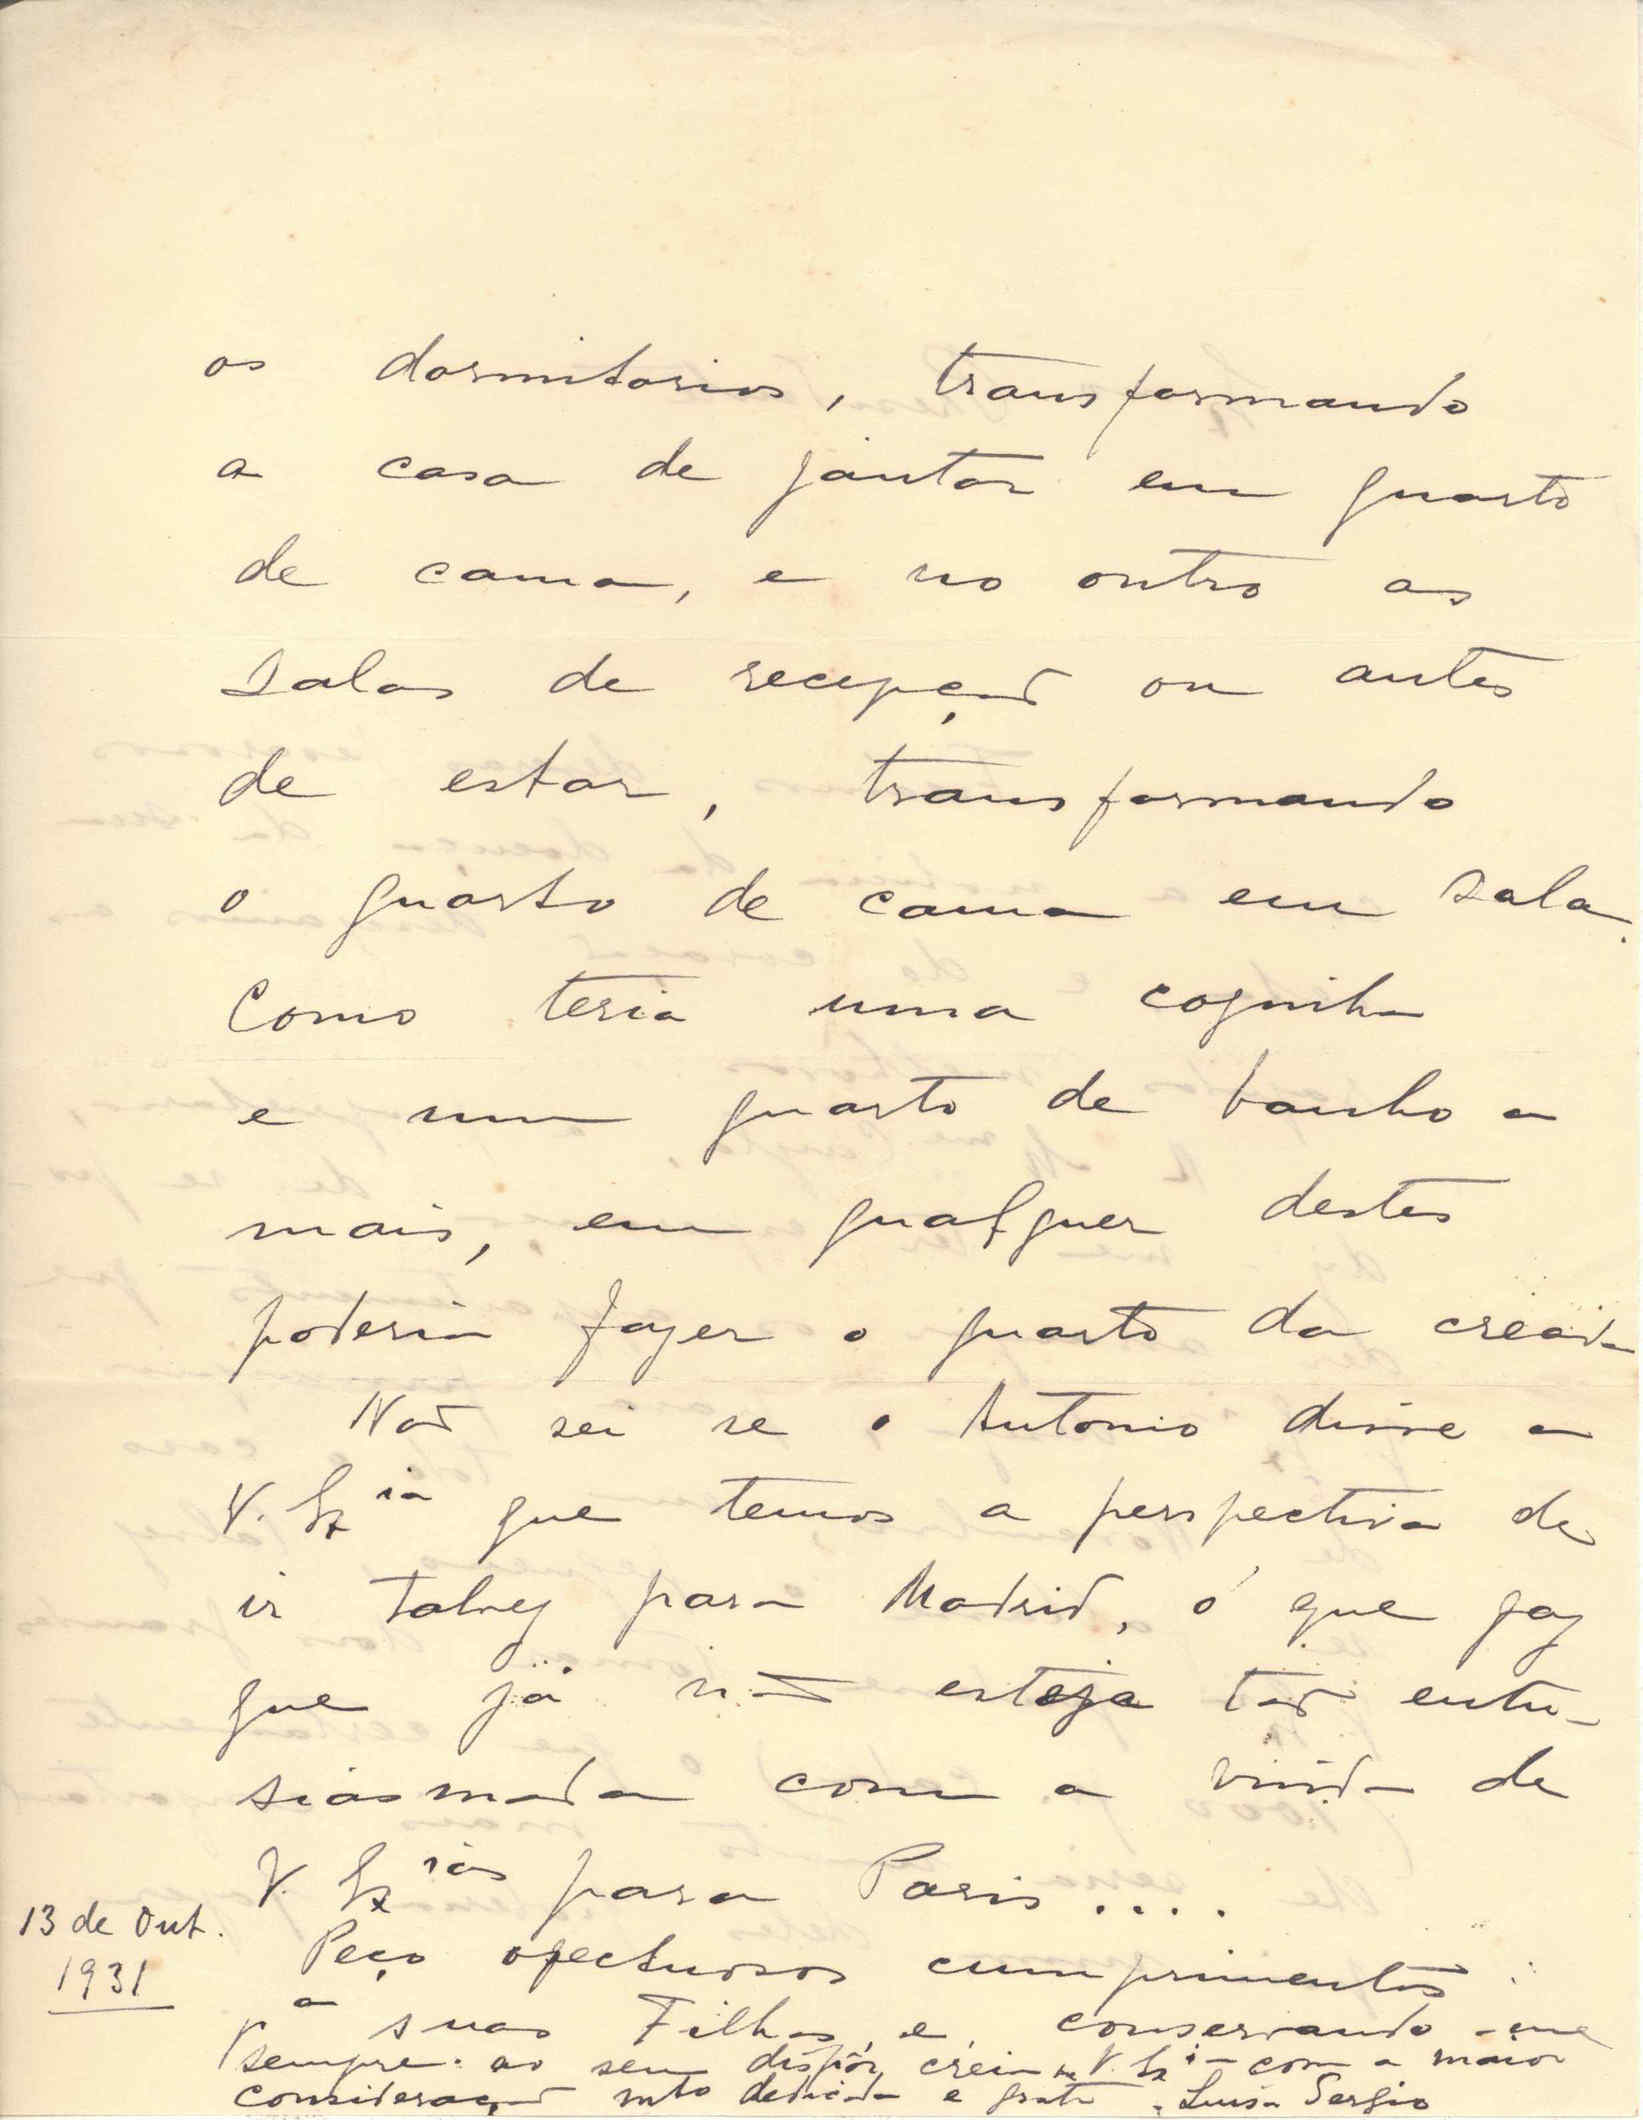 os dormitorios, transformando
a casa de jantar em quarto
de cama, e no outro as
salas de recepção ou antes
de estar, transformando
o quarto de cama em sala.
Como teria uma cozinha
e um quarto de banho a
mais, em qualquer destes
poderia fazer o quarto da creada
Não sei se o Antonio disse a
V. Ex.ia que temos a perspectiva de
ir talvez para Madrid, o que faz
que já não esteja tão entu-
siasmada com a vinda de
V. Ex.ias para Paris....
13 de Out.
1931
Peço afectuosos cumprimentos
pª suas Filhas, e, conservando-me
sempre ao seu dispôr, creia-me V. Ex.ia com a maior
consideração mto dedicada e grata. Luisa Sergio